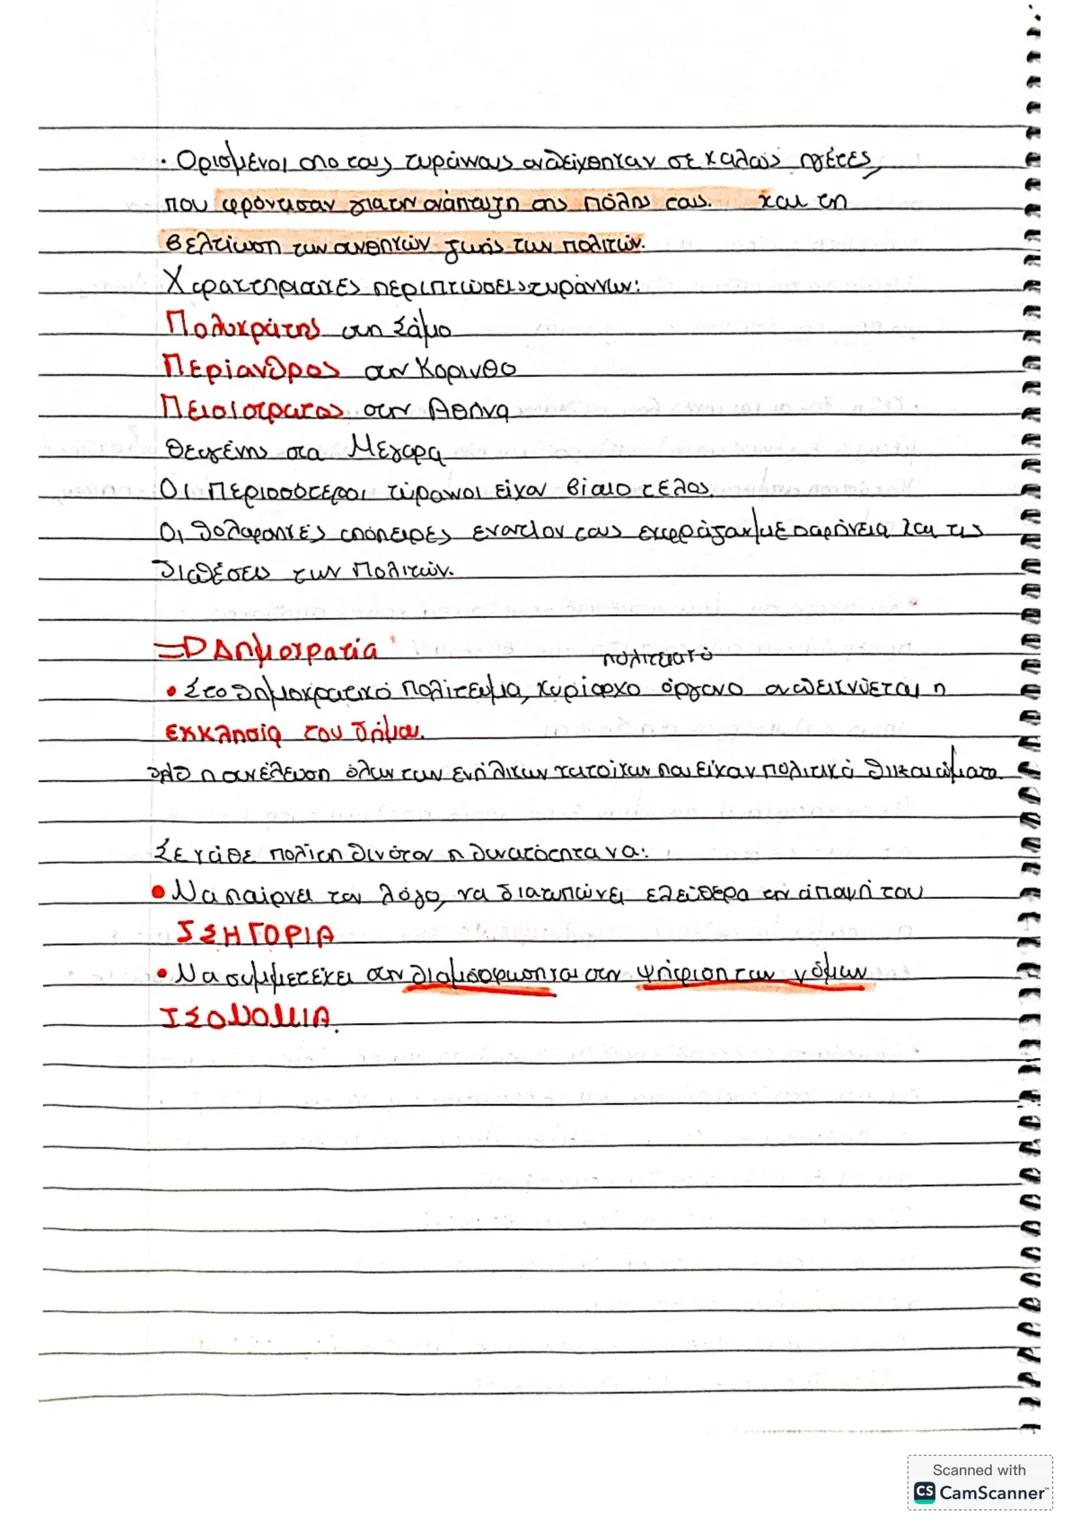 · Ορισμένοι απο τους τυράννους αναδείχθηκαν σε καλούς ηγέτες,
που φρόντισαν για την ανάπτυξη της πόλης τους. και τη
βελτίωση των συνθηκών ζωής των πολιτών.
Χαρακτηριστικές περιπτώσεις τυράννων:
Πολυκράτης στη Σάμο
Περίανδρος στην Κορινθο
Πεισίστρατος στην Αθήνα
Θεαγένης στα Μέγαρα
Οι περισσότεροι τύραννοι είχαν βίαιο τέλος.
Οι δολοφονικές απόπειρες εναντίον τους εκφράζαν με σαφήνεια και τις
διαθέσεις των πολιτών.
=D Δημοκρατία
πολιτειακό
• Στο δημοκρατικό πολίτευμα, κυρίαρχο όργανο αναδεικνύεται η
εκκλησία του δήμου.
η συνέλευση όλων των ενήλικων κατοίκων που είχαν πολιτικά δικαιώματα.
Σε κάθε πολίτη δινόταν η δυνατότητα να:
• Να παίρνει τον λόγο, να διατυπώνει ελεύθερα την άποψή του
ΙΣΗΓΟΡΙΑ
• Να συμμετέχει στην διαμόρφωση και στην ψήφιση των νόμων
ΙΣΟΝΟΜΙΑ.
Scanned with
CS CamScanner